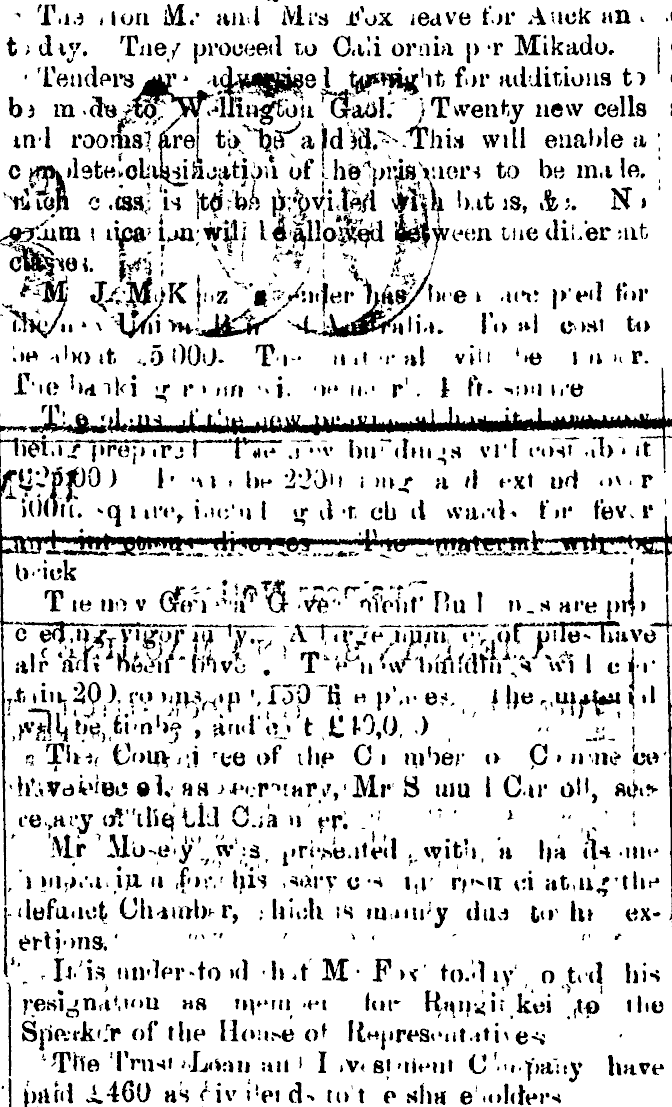 The Hon Mr and Mrs Fox leave for Auckland
today. They proceed to California per Mikado.
Tenders are advertised tonight for additions to
be made to Wellington Gaol. Twenty new cells
and rooms are to be added. This will enable a
complete classification of the prisoners to be made.
Each class is to be provided with baths, &c. No
communication will be allowed between the different
classes.
tender has been accepted for
the new Union Bank of Australia. Total cost to
be about £5000. The material will be timber.
The banking room will be square
The plans of the new provincial hospital are now
being prepared. The new buildings will cost about
It will be long and extend over
square, including detached wards for fever
and infectious diseases. The material will be
brick
The new General Government Buildings are pro
ceeding vigorously. A large number of piles have
already been driven. The new buildings will con
tain 200 rooms and 150 fireplaces. The material
will be timber, and cost
The Committee of the Chamber of Commerce
have elected, as secretary, Mr Samuel Carroll, sec-
retary of the old Chamber.
Mr Mosely was presented with a handsome
honorarium for his services in resuscitating the
defunct Chamber, which is mainly due to his ex-
ertions.
It is understood that Mr Fox today posted his
resignation as member for Rangitikei to the
Speaker of the House of Representatives
The Trust Loan and Investment Company have
paid £460 as dividends to the shareholders